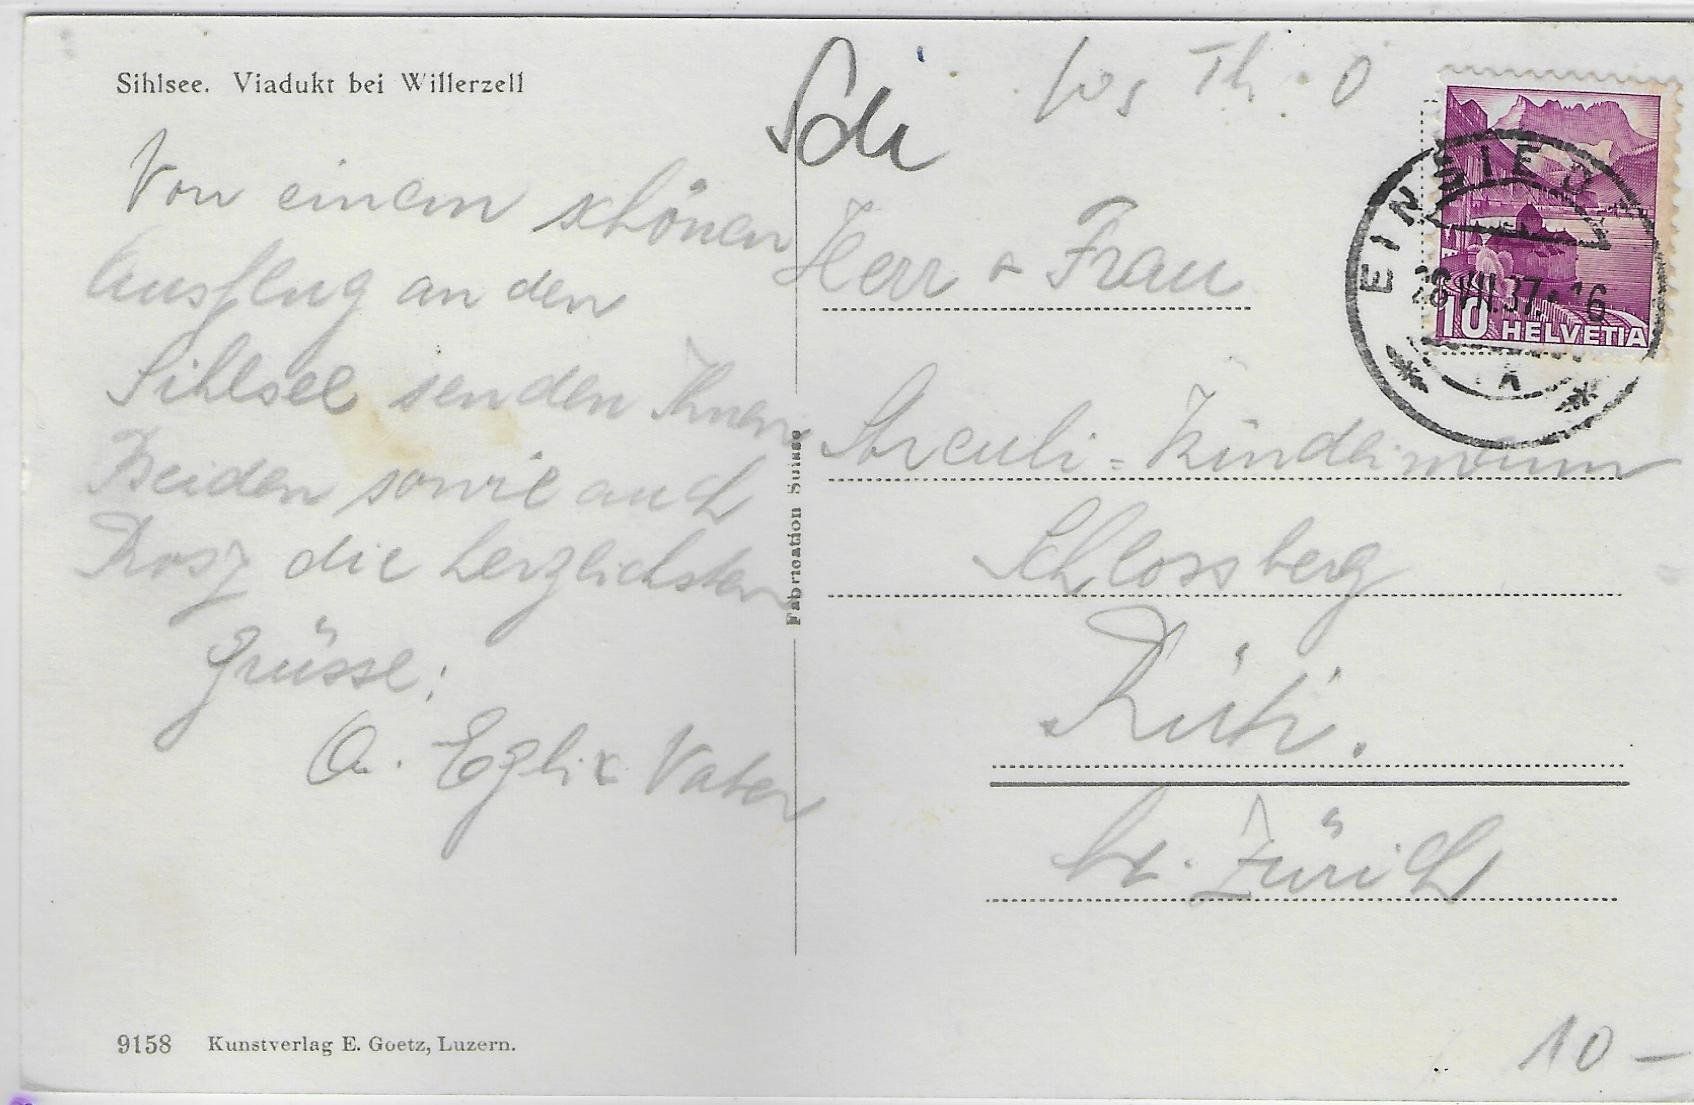 Sihlsee. Viadukt bei Willerzell
Von einem schönen
Ausflug an den
Sihlsee senden Ihnen
Beiden sowie auch
Rosy die herzlichsten
Grüsse:
A. Egli & Vater
9158 Kunstverlag E. Goetz, Luzern.
Fabrication Suisse
Th. 0
Herr & Frau
Streuli-Kündig
Schlossberg
Rüti.
Kt. Zürich
EINSIED
28.VIII.37. 16
10 HELVETIA
10 –